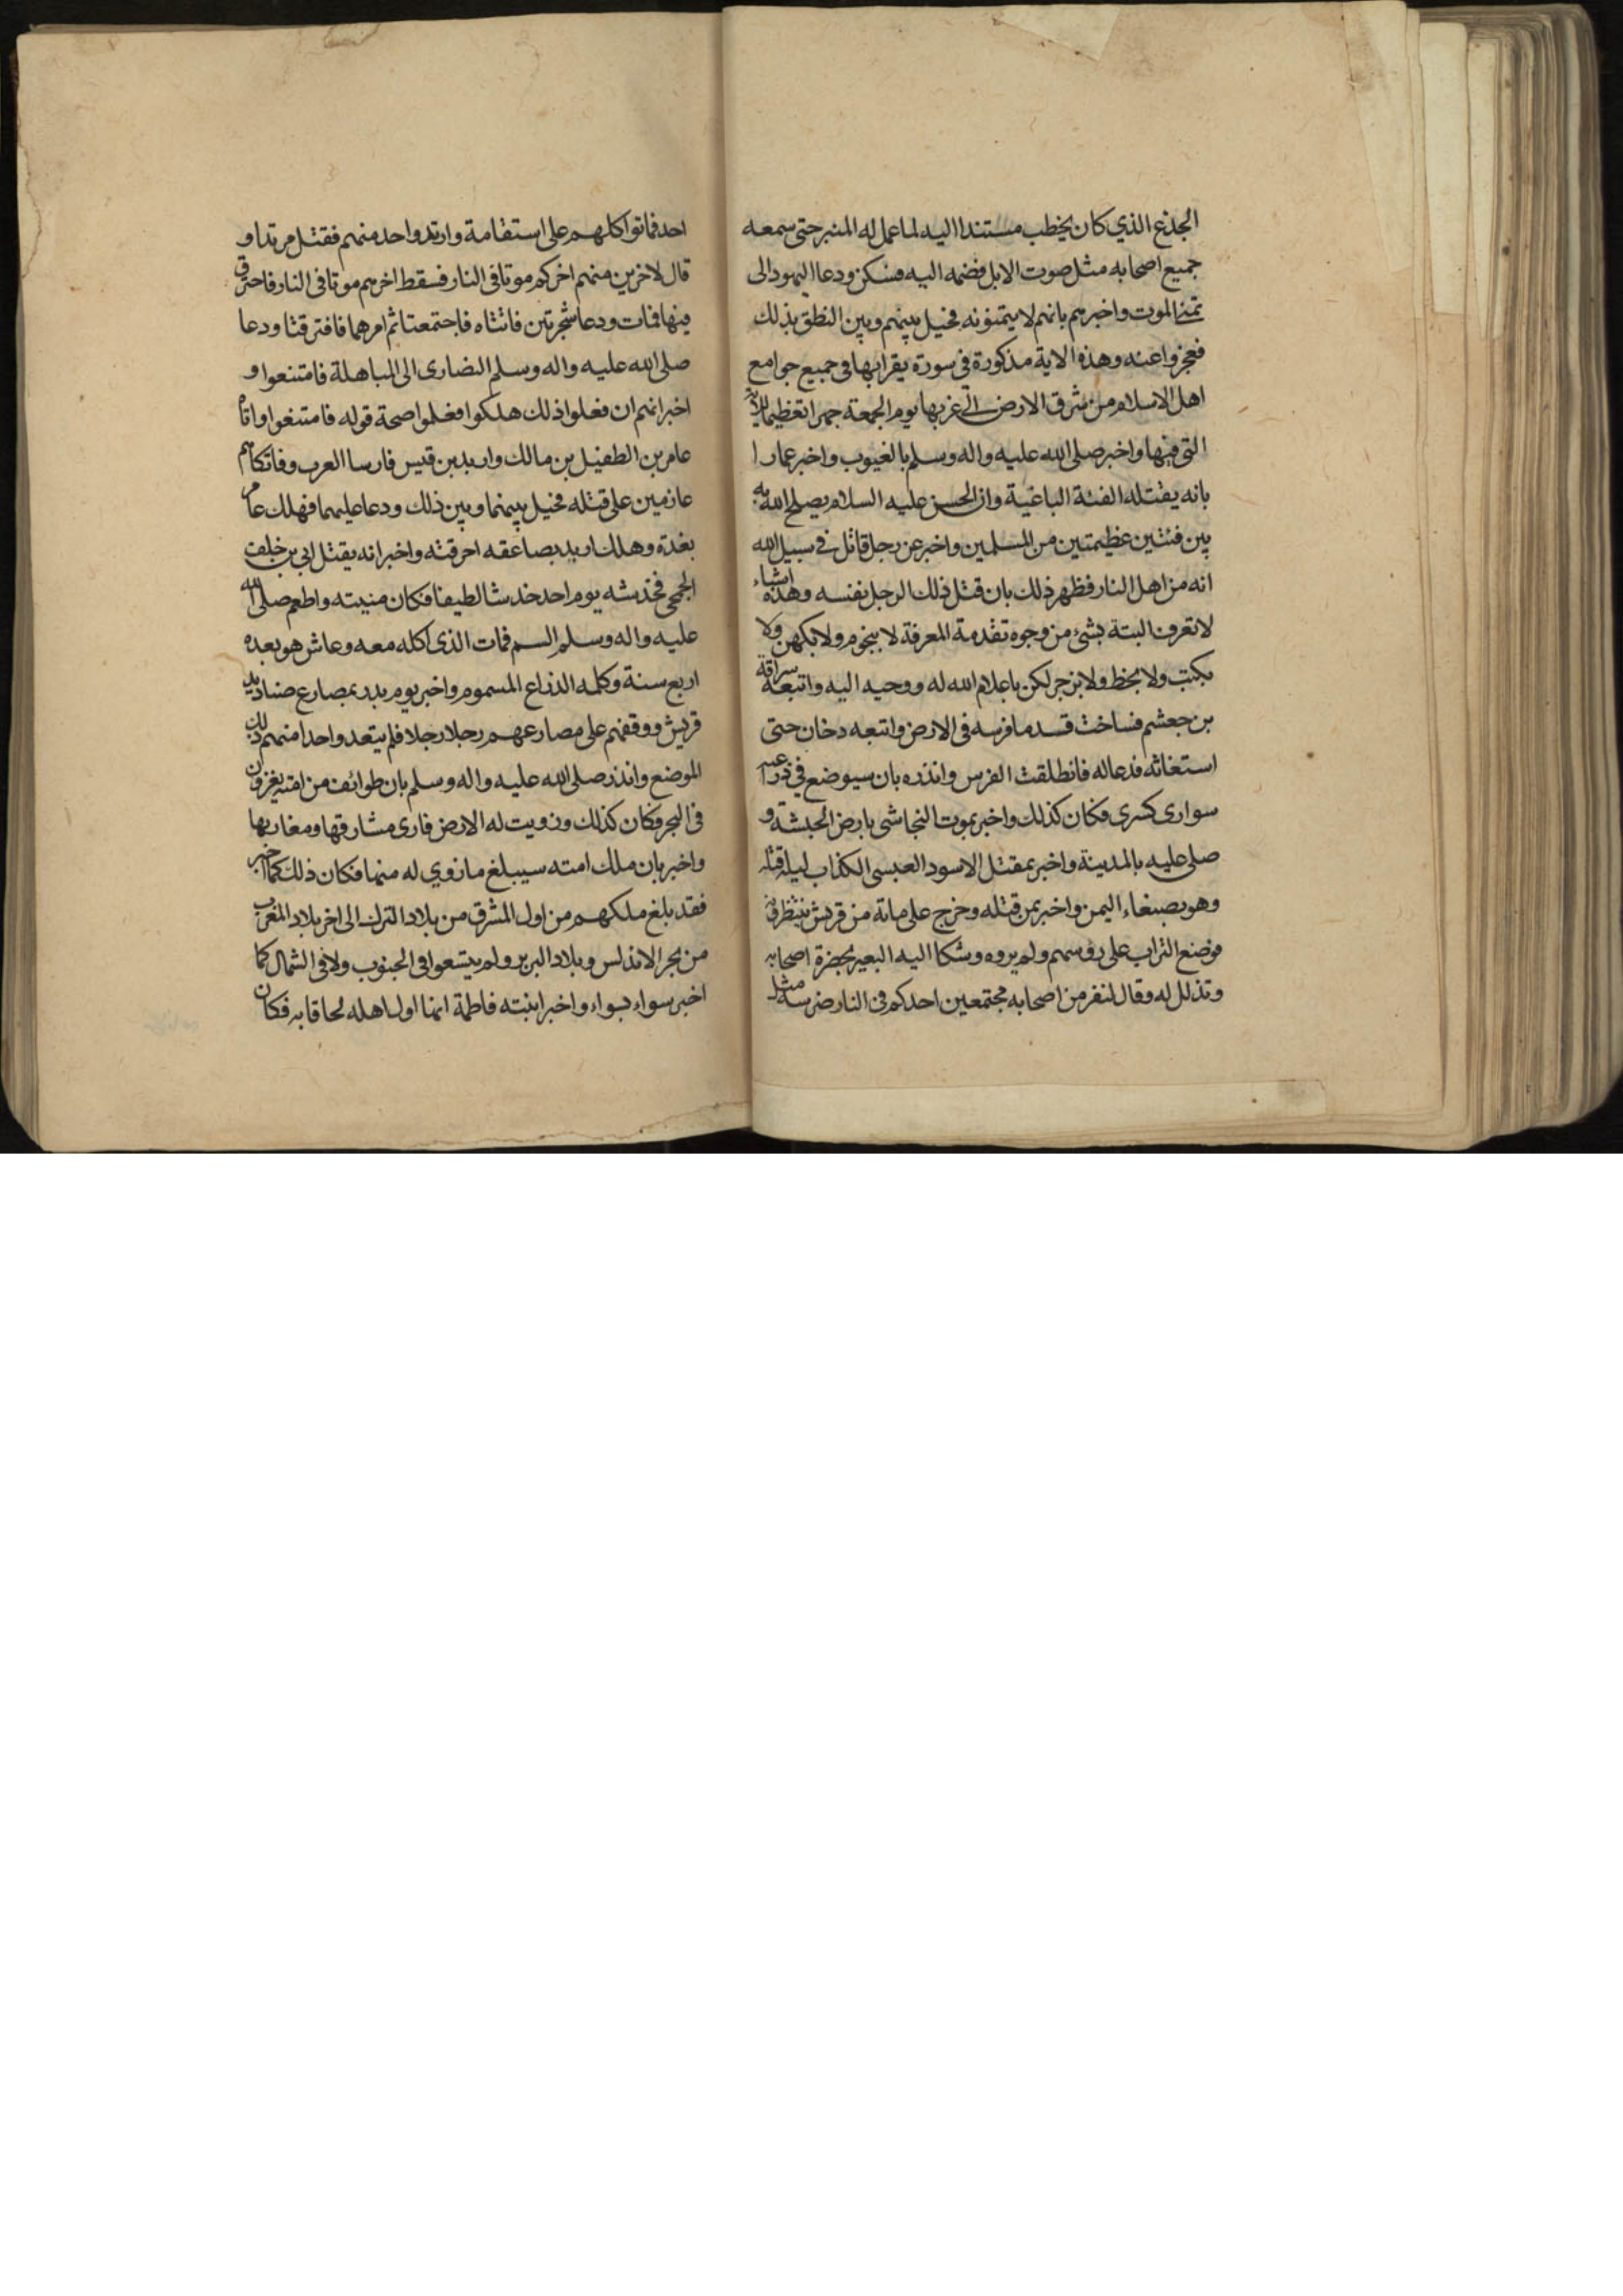 الجذع الذي كان يخطب مستندا اليه لما عمل له المنبر حتى سمعه
جميع اصحابه مثل صوت الابل فضمه اليه فسكن ودعا اليهود الى
تمني الموت واخبرهم بانهم لا يتمنونه فحيل بينهم وبين النطق بذلك
فعجزوا عنه وهذه الاية مذكورة في سورة يقرا بها في جميع جوامع
اهل الاسلام من شرق الارض الى غربها يوم الجمعة جهرا تعظيما للاية
التي فيها واخبر صلى الله عليه واله وسلم بالغيوب واخبر عمارا
بانه يقتله الفئة الباغية وان الحسن عليه السلام يصلح الله به
بين فئتين عظيمتين من المسلمين واخبر عن رجل قاتل في سبيل الله
انه من اهل النار فظهر ذلك بان قتل ذلك الرجل نفسه وهذه اشياء
لا تعرف البتة بشئ من وجوه تقدمة المعرفة لا بنجوم ولا بكهن ولا
بكتب ولا بخط ولا بزجر لكن باعلام الله له ووحيه اليه واتبعه سراقة
بن جعشم فساخت قدما فرسه في الارض واتبعه دخان حتى
استغاثه فدعا له فانطلقت الفرس وانذره بان سيوضع في ذراعيه
سواري كسرى فكان كذلك واخبر بموت النجاشي بارض الحبشة و
صلى عليه بالمدينة واخبر بمقتل الاسود العبسى الكذاب ليلة قتله
وهو بصنعاء اليمن واخبر بمن قتله وخرج على مائة من قريش ينتظرونه
فوضع التراب على رؤسهم ولم يروه وشكا اليه البعير بحضرة اصحابه
وتذلل له وقال لنفر من اصحابه مجتمعين احدكم في النار ضرسه مثل
احد فماتوا كلهم على استقامة وارتد واحد منهم فقتل مرتدا و
قال لاخرين منهم اخركم موتا في النار فسقط اخرهم موتا في النار فاحترق
فيها فمات ودعا شجرتين فاتتاه فاجتمعتا ثم امرهما فافترقتا ودعا
صلى الله عليه واله وسلم النصارى الى المباهلة فامتنعوا و
اخبر انهم ان فعلوا ذلك هلكوا فعلموا صحة قوله فامتنعوا واتاه
عامر بن الطفيل بن مالك واربد بن قيس فارسا العرب وفاتكاهم
عازمين على قتله فحيل بينهما وبين ذلك ودعا عليهما فهلك عامر
بغدة وهلك اربد بصاعقه احرقته واخبر انه يقتل ابي بن خلف
الجمحي فخدشه يوم احد خدشا لطيفا فكان منيته واطعم صلى الله
عليه واله وسلم السم فمات الذي اكله معه وعاش هو بعده
اربع سنة وكلمه الذراع المسموم واخبر يوم بدر بمصارع صناديد
قريش ووقفهم على مصارعهم رجلا رجلا فلم يتعد واحدا منهم ذلك
الموضع وانذر صلى الله عليه واله وسلم بان طوائف من امته يغزون
في البحر فكان كذلك وزويت له الارض فارى مشارقها ومغاربها
واخبر بان ملك امته سيبلغ ما زوي له منها فكان ذلك كما اخبر
فقد بلغ ملكهم من اول المشرق من بلاد الترك الى اخر بلاد المغرب
من بحر الاندلس وبلاد البربر ولم يتسعوا في الجنوب ولا في الشمال كما
اخبر سواء بسواء واخبر ابنته فاطمة انها اول اهله لحاقا به فكان